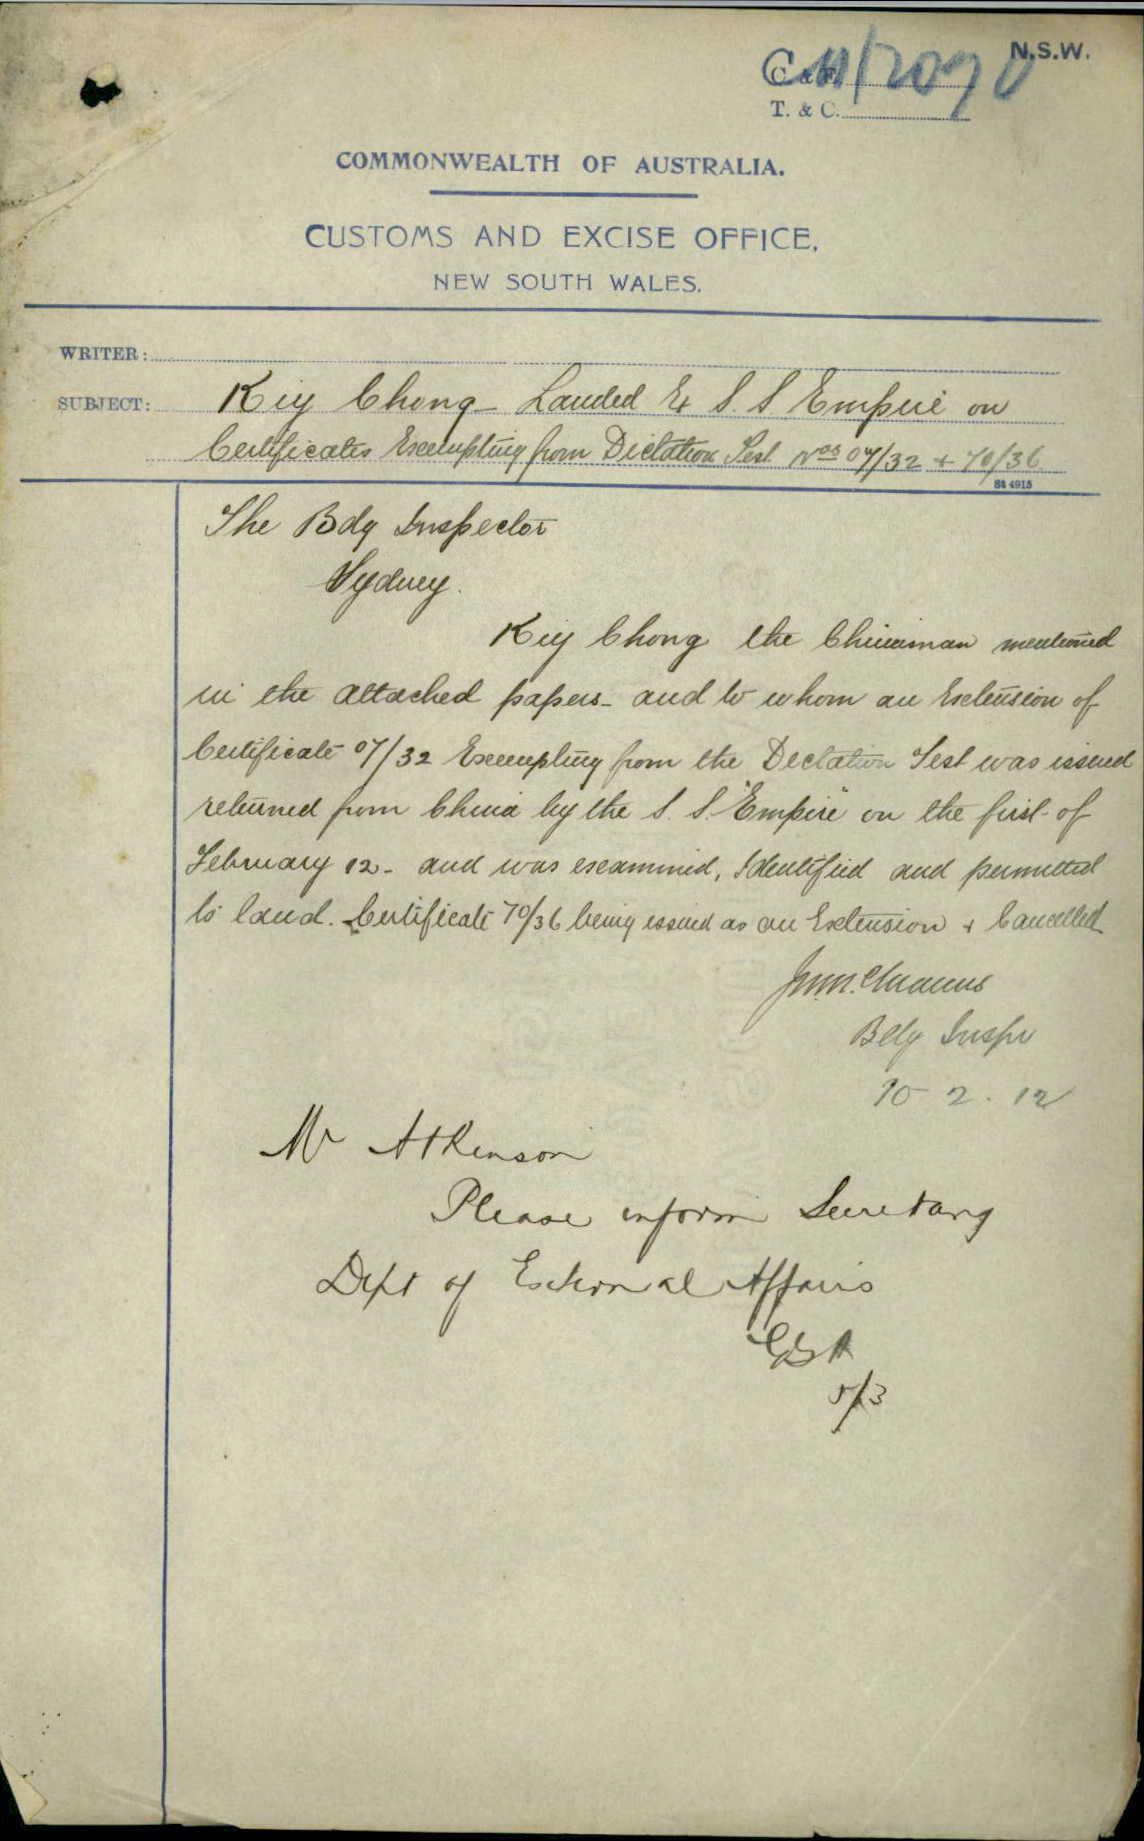 N.S.W.
C11/2090
C. & E.
T. & C.
COMMONWEALTH OF AUSTRALIA.
CUSTOMS AND EXCISE OFFICE,
NEW SOUTH WALES.
WRITER:
SUBJECT: Kiy Chong - Landed Ex S.S Empire on
Certificates Exempting from Dictation Test Nos 07/32 + 10/36
St 4915
The Bdg Inspector
Sydney.
Kiy Chong the Chinaman mentioned
in the attached papers - and to whom an Extension of
Certificate 07/32 Exempting from the Dictation Test was issued
returned from China by the S.S. "Empire" on the first of
February 12 - and was examined, Identified and permitted
to land. Certificate 10/36 being issued as an Extension + Cancelled
Bdg Inspr
10 2. 12
Mr Atkinson
Please inform Secretary
Dept of External Affairs
5/3